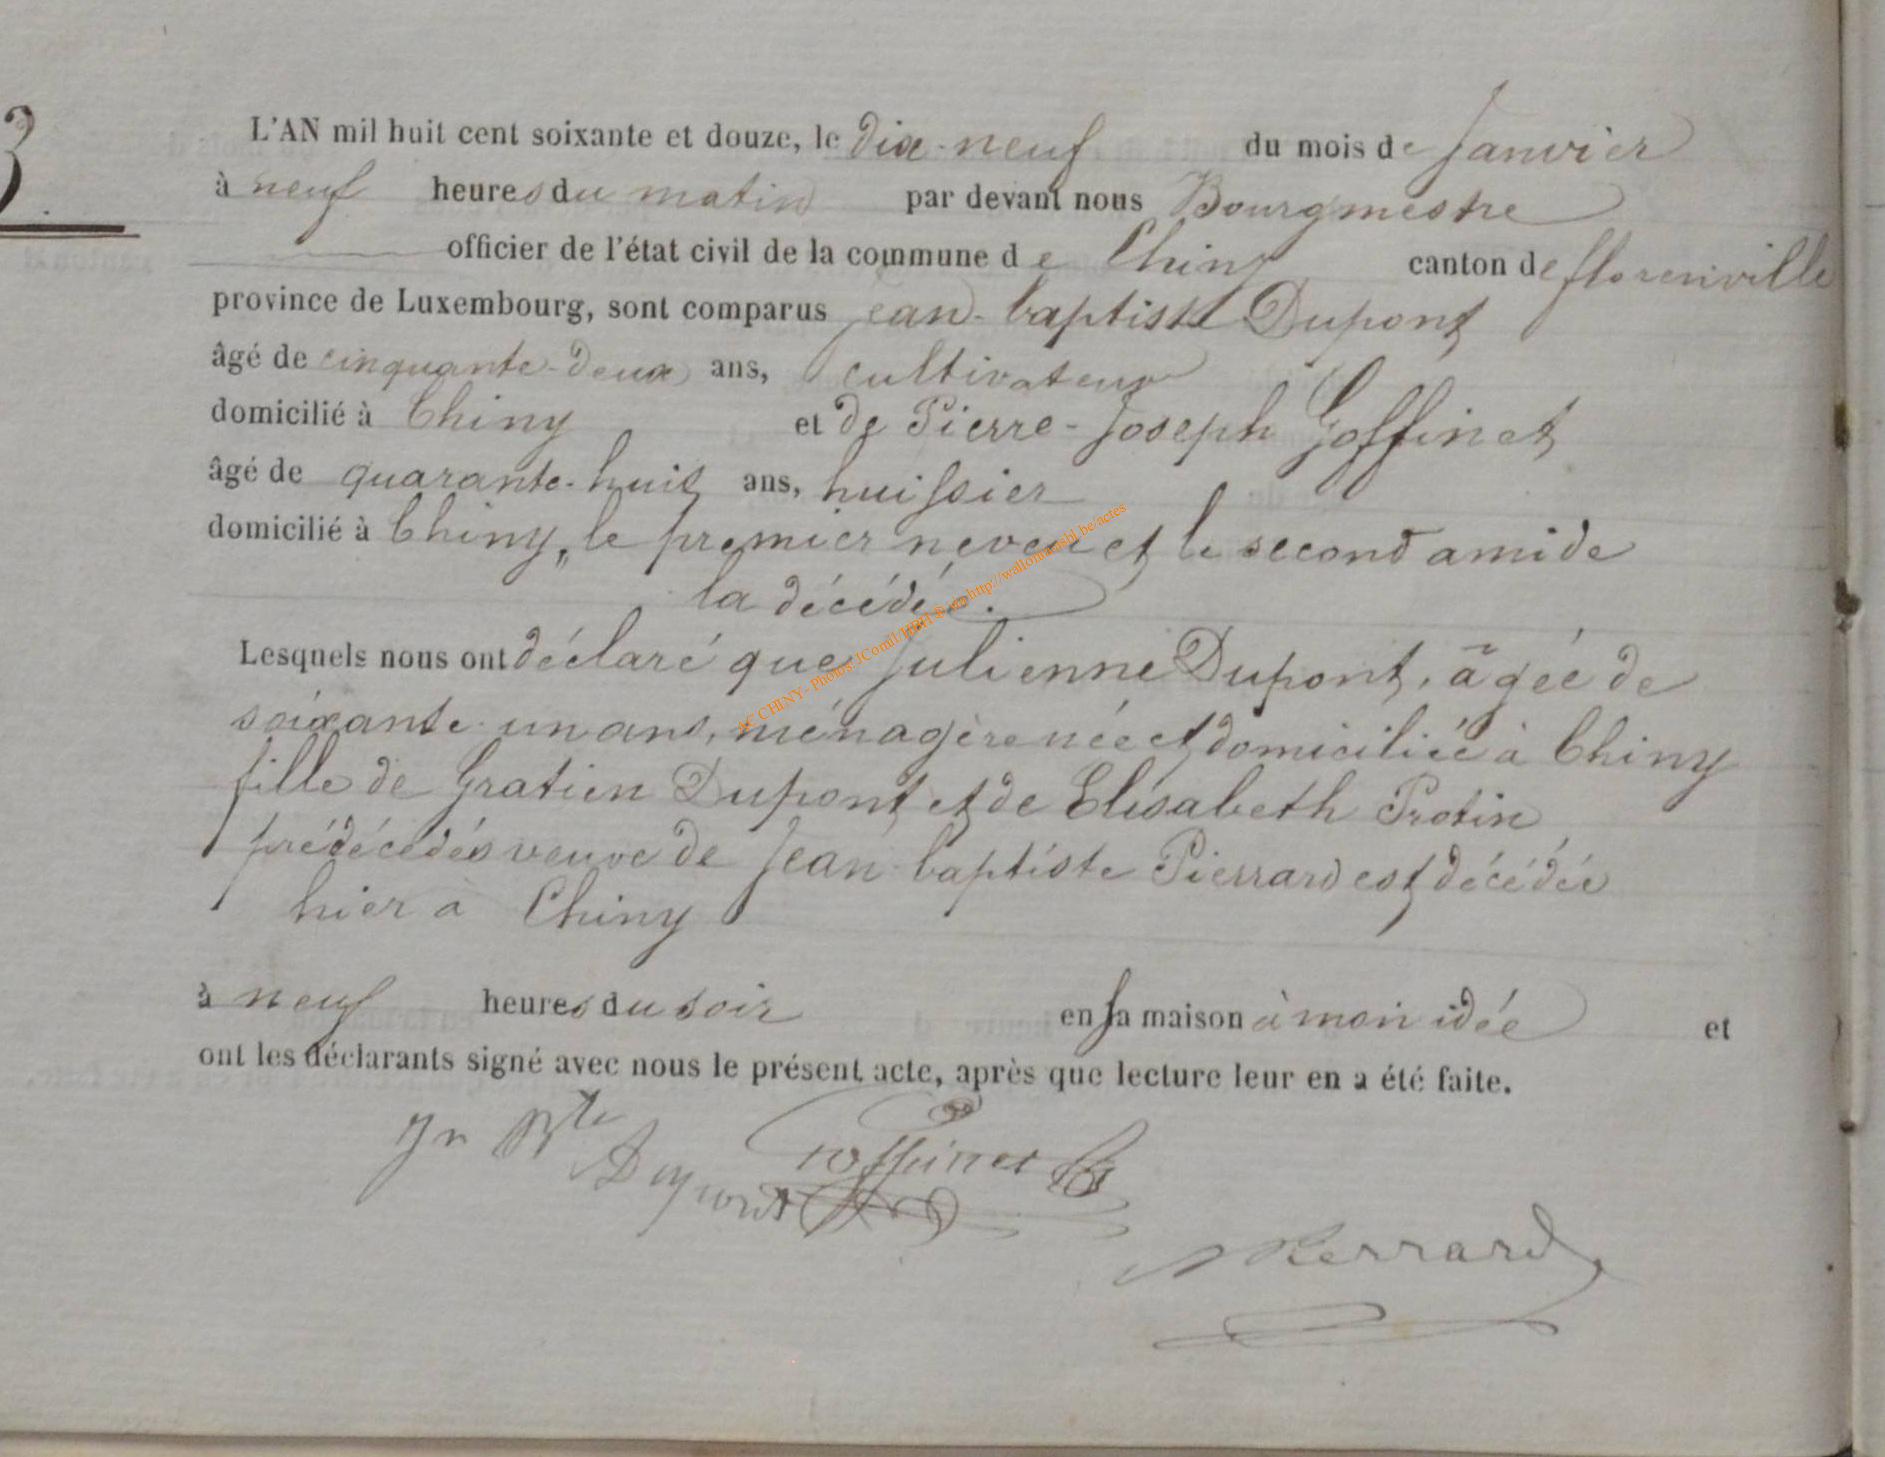 3.
L'AN mil huit cent soixante et douze, le dix-neuf du mois de Janvier
à neuf heures du matin par devant nous Bourgmestre
officier de l'état civil de la commune de Chiny canton de florenville
province de Luxembourg, sont comparus Jean-baptiste Dupont
âgé de cinquante-deux ans, cultivateur
domicilié à Chiny et de Pierre-Joseph Goffinet
âgé de quarante-huit ans, huissier
domicilié à Chiny, le premier neveu et le second ami de
la décédée.
Lesquels nous ont déclaré que Julienne Dupont, âgée de
soixante-un ans, ménagère née et domiciliée à Chiny
fille de Gratien Dupont et de Elisabeth Protin
prédécédés veuve de Jean-baptiste Pierrard est décédée
hier à Chiny
à neuf heures du soir en sa maison à mon idée et
ont les déclarants signé avec nous le présent acte, après que lecture leur en a été faite.
Jn Bte Dupont
Goffinet
Pierrard
AC CHINY - Photos JConil/ http://wallonica.be/actes